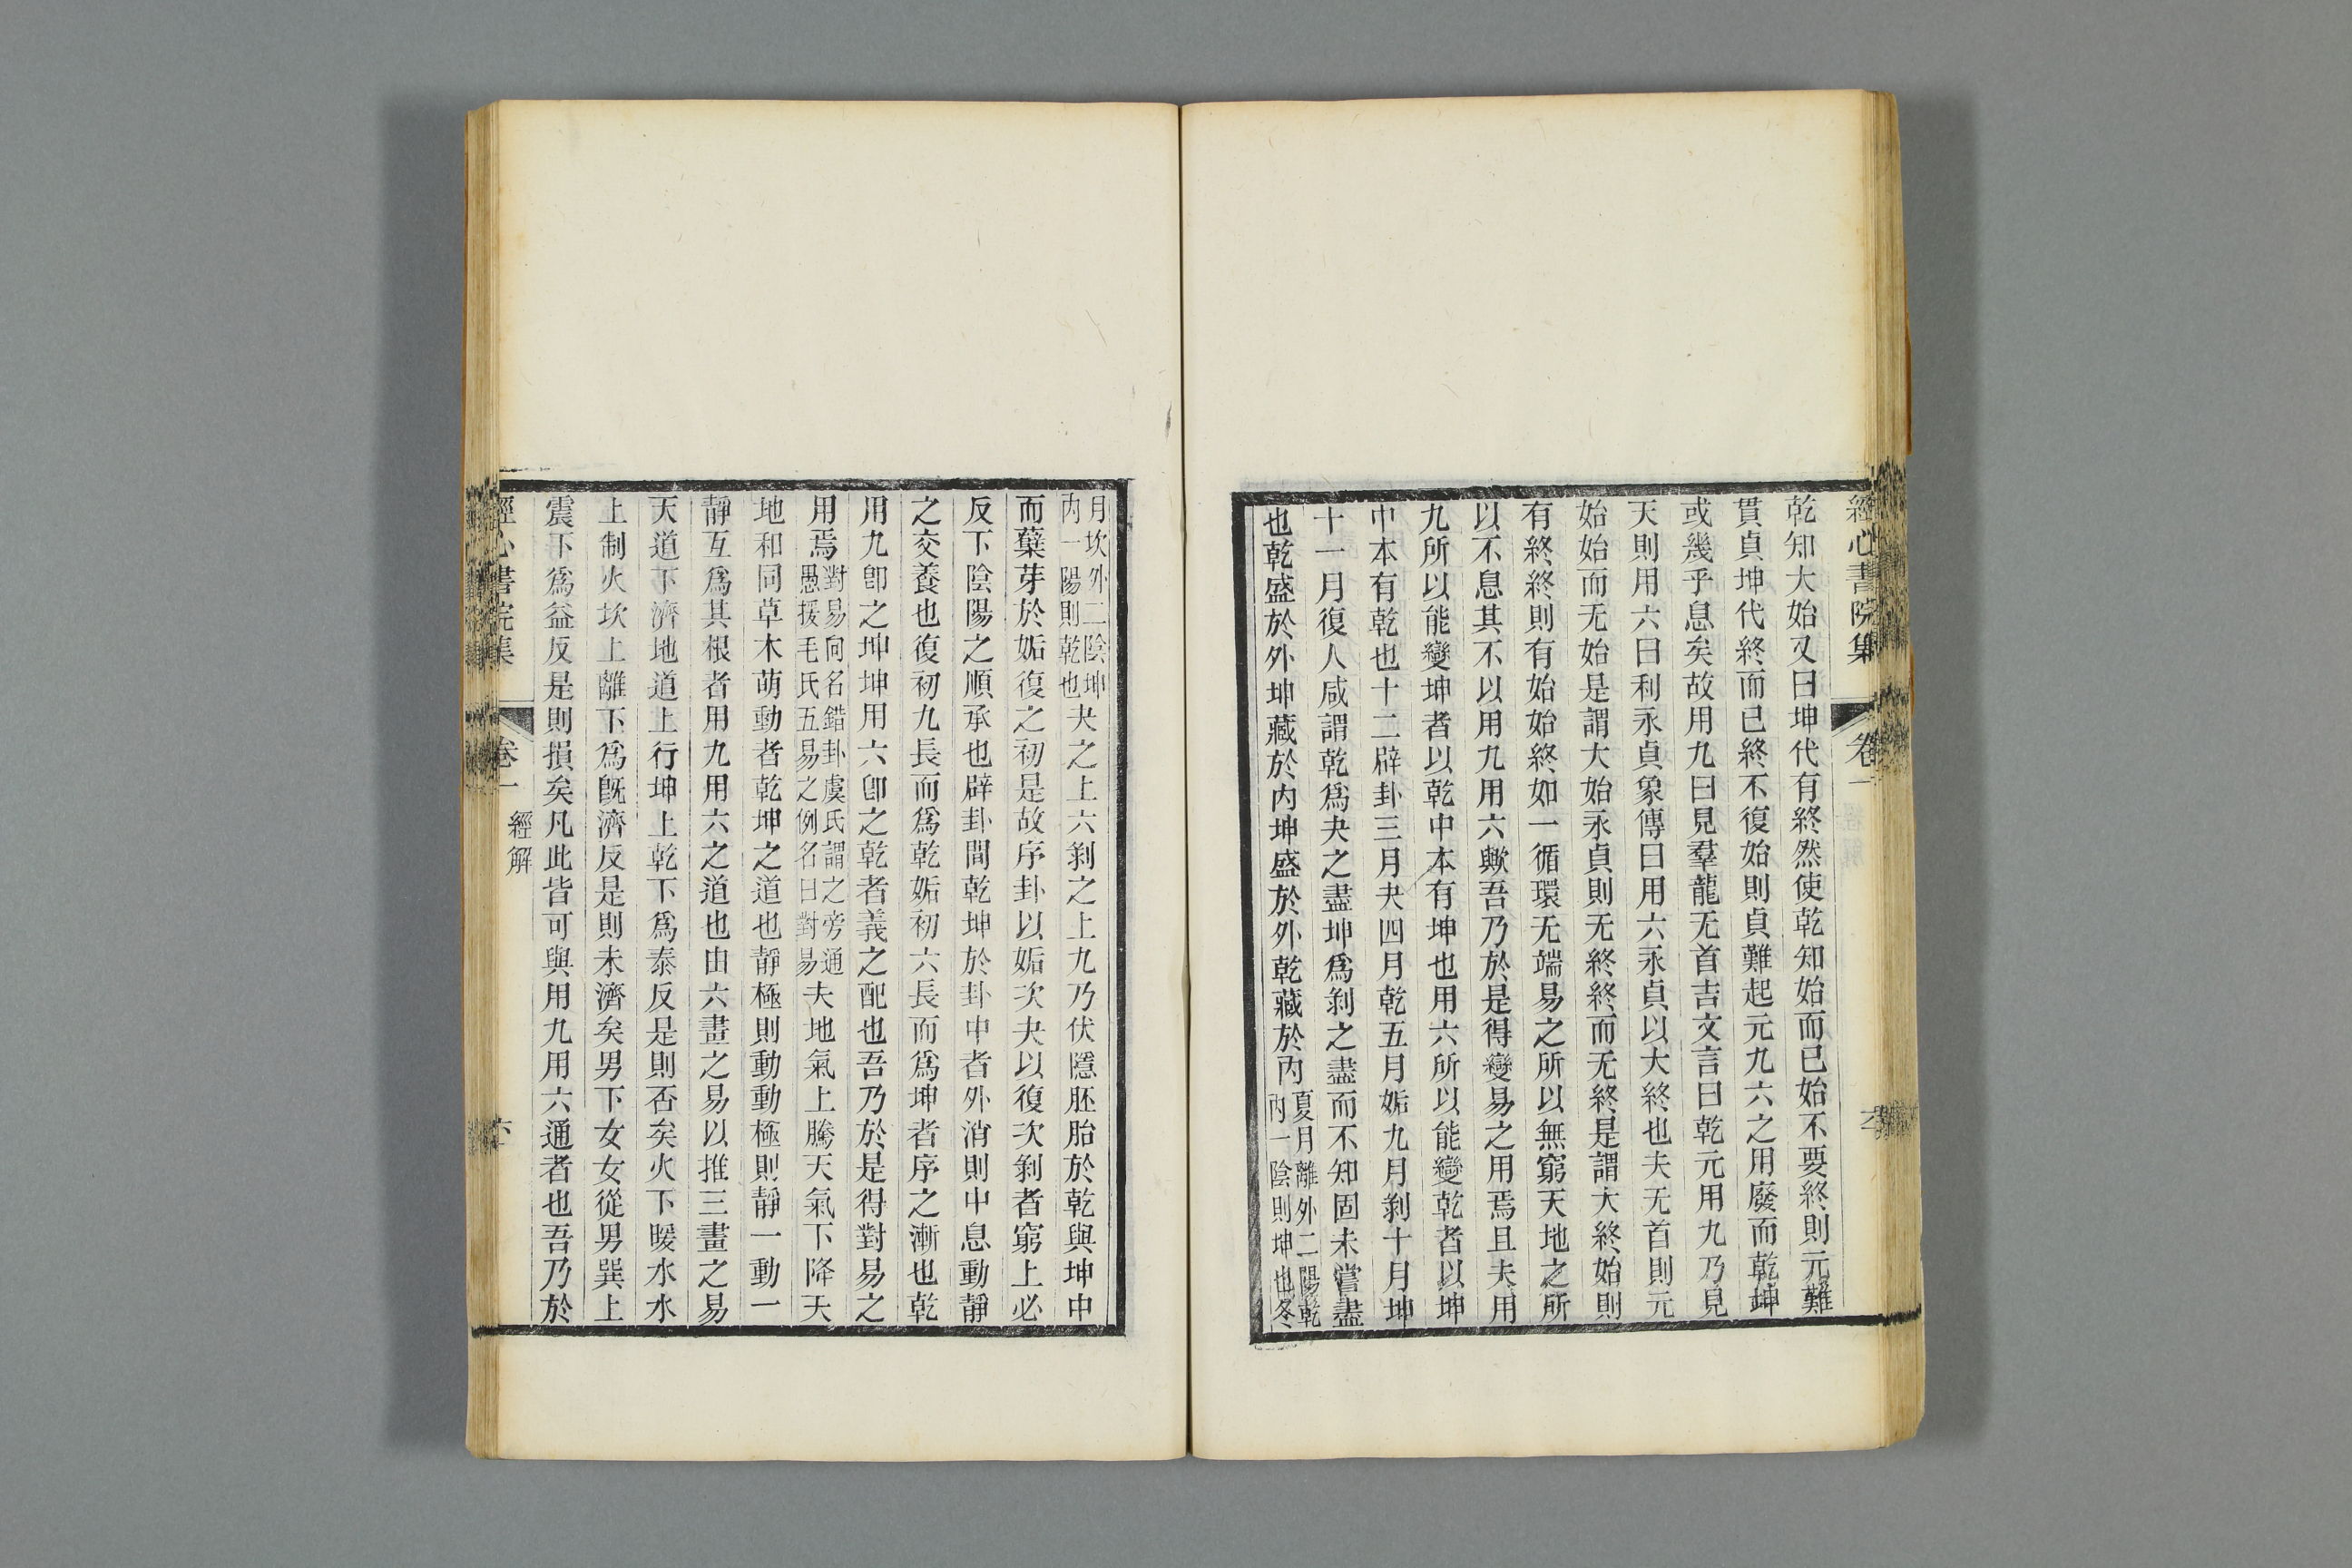 經心書院集 卷一
乾知大始又曰坤代有終然使乾知始而已始不要終則元難
貫貞坤代終而已終不復始則貞難起元九六之用廢而乾坤
或幾乎息矣故用九曰見羣龍无首吉文言曰乾元用九乃見
天則用六曰利永貞象傳曰用六永貞以大終也夫无首則元
始始而无始是謂大始永貞則无終終而无終是謂大終始則
有終終則有始始終如一循環无端易之所以無窮天地之所
以不息其不以用九用六歟吾乃於是得變易之用焉且夫用
九所以能變坤者以乾中本有坤也用六所以能變乾者以坤
中本有乾也十二辟卦三月夬四月乾五月姤九月剝十月坤
十一月復人咸謂乾爲夬之盡坤爲剝之盡而不知固未嘗盡
也乾盛於外坤藏於内坤盛於外乾藏於内夏月離外二陽乾
内一陰則坤也冬
月坎外二陰坤
内一陽則乾也夬之上六剝之上九乃伏隱胚胎於乾與坤中
而蘖芽於姤復之初是故序卦以姤次夬以復次剝者窮上必
反下陰陽之順承也辟卦間乾坤於卦中者外消則中息動靜
之交養也復初九長而爲乾姤初六長而爲坤者序之漸也乾
用九卽之坤坤用六卽之乾者義之配也吾乃於是得對易之
用焉對易向名錯卦虞氏謂之旁通
愚援毛氏五易之例名曰對易夫地氣上騰天氣下降天
地和同草木萌動者乾坤之道也靜極則動動極則靜一動一
靜互爲其根者用九用六之道也由六畫之易以推三畫之易
天道下濟地道上行坤上乾下爲泰反是則否矣火下暖水水
上制火坎上離下爲旣濟反是則未濟矣男下女女從男巽上
震下爲益反是則損矣凡此皆可與用九用六通者也吾乃於
經心書院集 卷一 經解